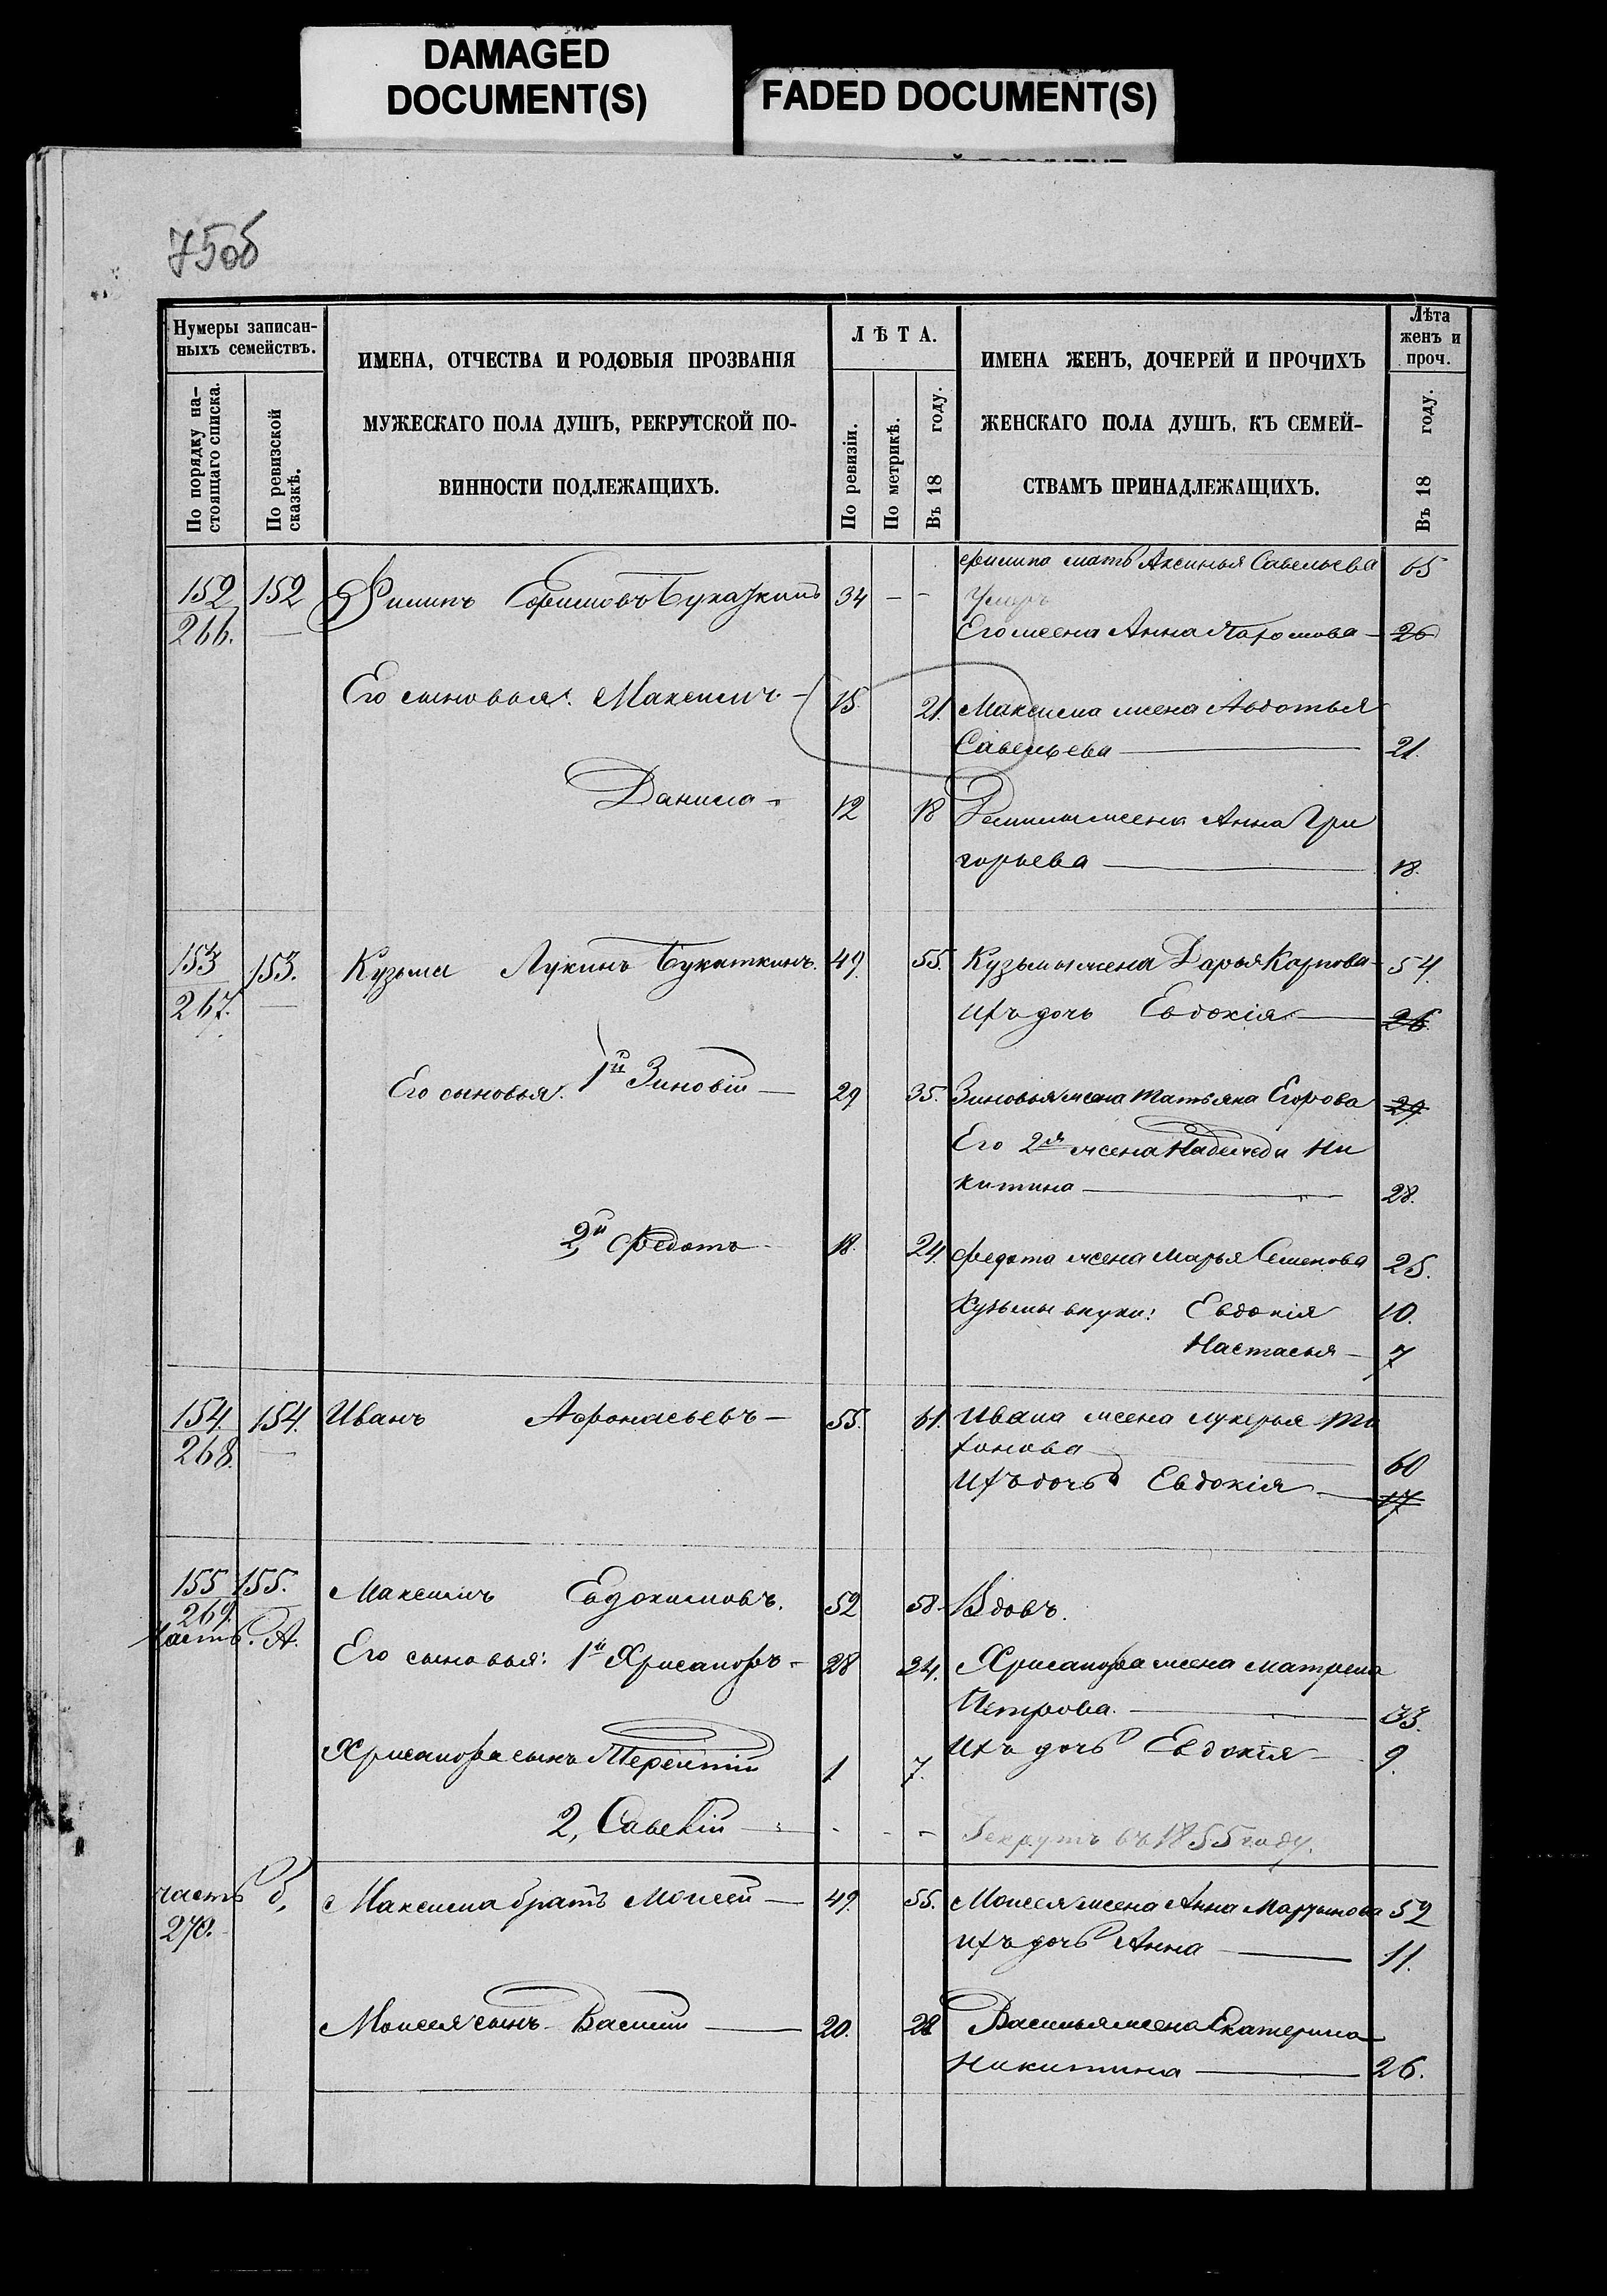 DAMAGED
DOCUMENT(S)
FADED DOCUMENT(S)
75об
Нумеры записан-
ныхъ семействъ.
По порядку на-
стоящаго списка.
По ревизской
сказкѣ.
ИМЕНА, ОТЧЕСТВА И РОДОВЫЯ ПРОЗВАНІЯ
МУЖЕСКАГО ПОЛА ДУШЪ, РЕКРУТСКОЙ ПО-
ВИННОСТИ ПОДЛЕЖАЩИХЪ.
ЛѢТА.
По ревизіи.
По метрикѣ.
Въ 18 году.
ИМЕНА ЖЕНЪ, ДОЧЕРЕЙ И ПРОЧИХЪ
ЖЕНСКАГО ПОЛА ДУШЪ, КЪ СЕМЕЙ-
СТВАМЪ ПРИНАДЛЕЖАЩИХЪ.
Лѣта
женъ и
проч.
Въ 18 году.
Филипа мать Аксинья Савельева 65
152 152 Филипъ Ефимовъ 34 - - Умеръ
266. Его жена Анна 26
Его сыновья: Максимъ - 15. 21. Максима жена Авдотья
Савельева 21.
Данила - 12 18 Данилы жена Анна Гри
горьева 18.
153 153. Кузьма Лукинъ Букаткинъ. 49. 55. Кузьмы жена Дарья Карпова 54.
267. Ихъ дочь Евдокія 26.
Его сыновья: 1й Зиновій 29 35. Зиновья жена Татьяна Егорова 29.
Его 2я жена Надежда Ни
китина 28.
2й Федотъ 18. 24. Федота жена Марья Семенова 25.
Кузьмы внуки: Евдокія 10.
Настасья 7
154. 154. Иванъ Афонасьевъ 55. 61. Ивана жена Лукерья Ти
хонова 60
268. Ихъ дочь Евдокія 17
155 155. Максимъ Евдокимовъ. 52 58. Вдовъ.
269.
Часть. А.
Его сыновья: 1й Хрисанфъ 28 34. Хрисанфа жена Матрена
Петрова. 33.
Хрисанфа сынъ Терентій 1 7. Ихъ дочь Евдокія 9.
2, Савелій - - - Рекрутъ въ 1855 году.
часть б, Максима братъ Моисей 49. 55. Моисея жена Анна Мартынова 52
270. Ихъ дочь Анна 11.
Моисея сынъ Василій 20. 28 Василья жена Екатерина
Никитина 26.